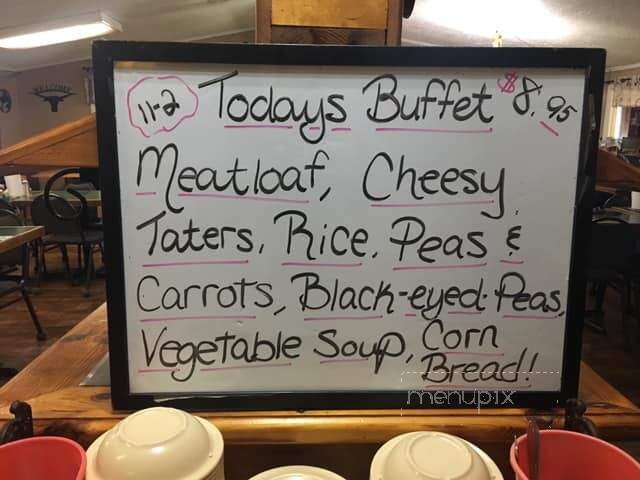 11-2 Todays Buffet $8.95
Meatloaf, Cheesy
Taters, Rice, Peas &
Carrots, Black-eyed-Peas,
Vegetable Soup, Corn
Bread!
menupix
WELCOME